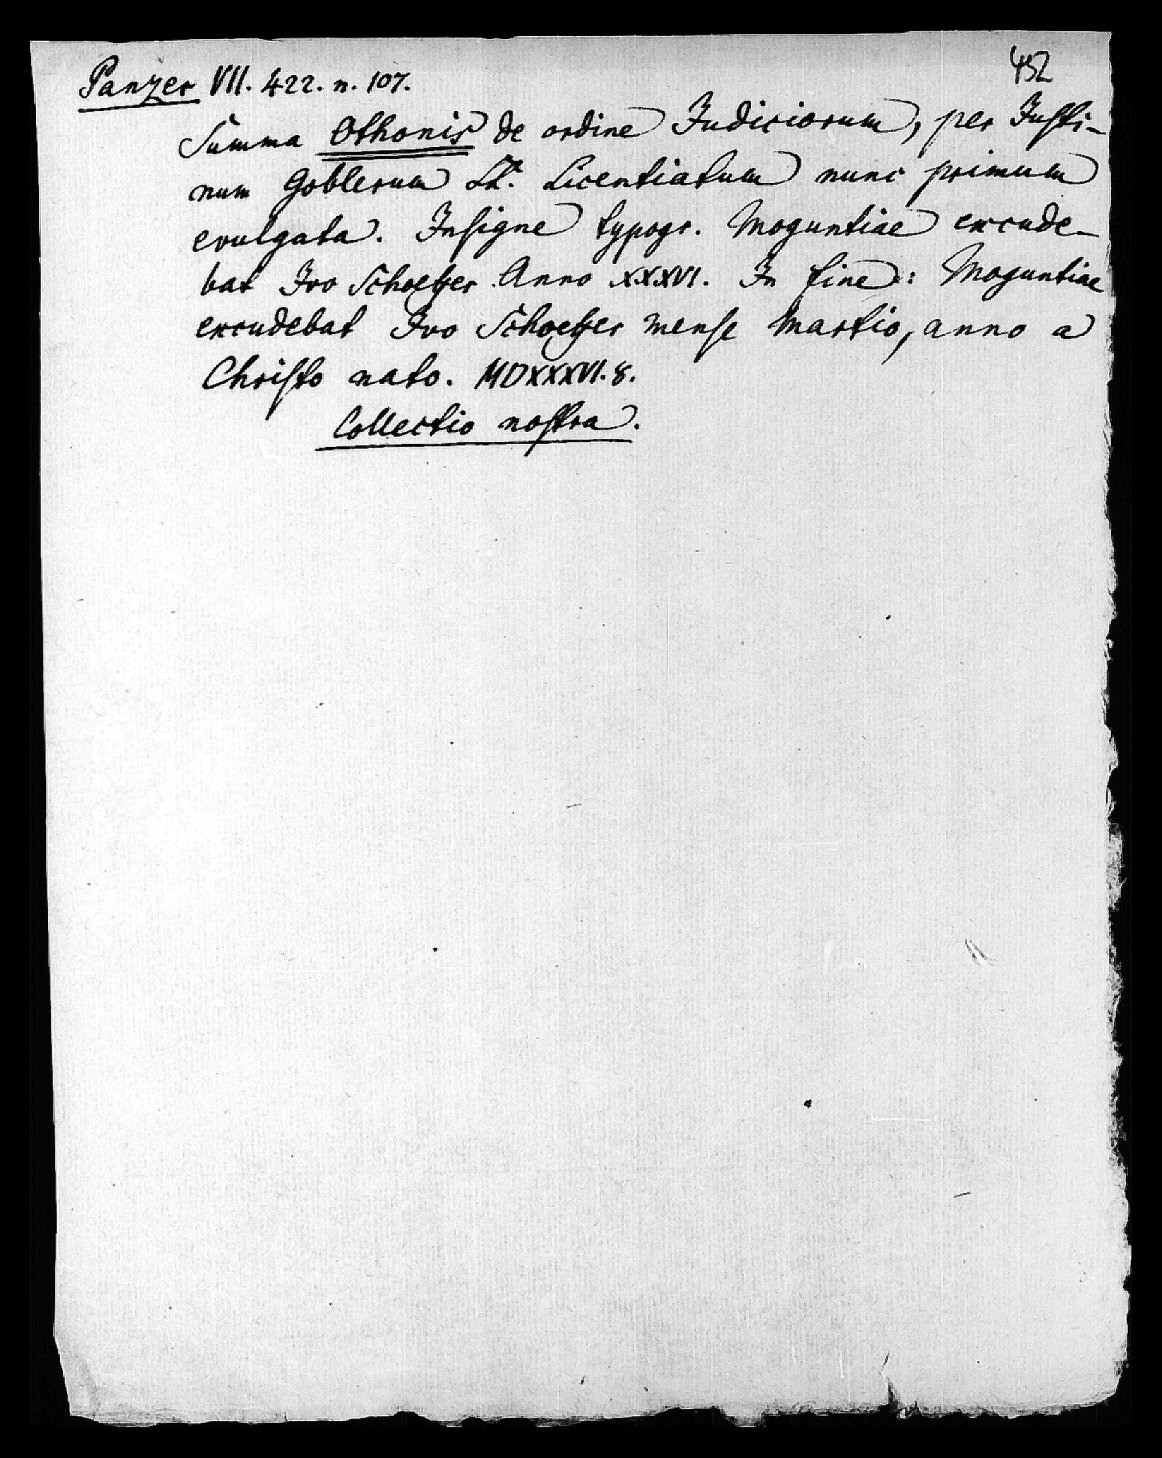 452
Panzer VII. 422. n. 107.
Summa Othonis de ordine Judiciorum, per Justi-
num Goblerum LL. Licentiatum nunc primum
evulgata. Insigne typogr. Moguntiae excude-
bat Ivo Schoeffer Anno XXXVI. In fine: Moguntiae
excudebat Ivo Schoeffer mense Martio, anno a
Christo nato. MDXXXVI. 8.
Collectio nostra.